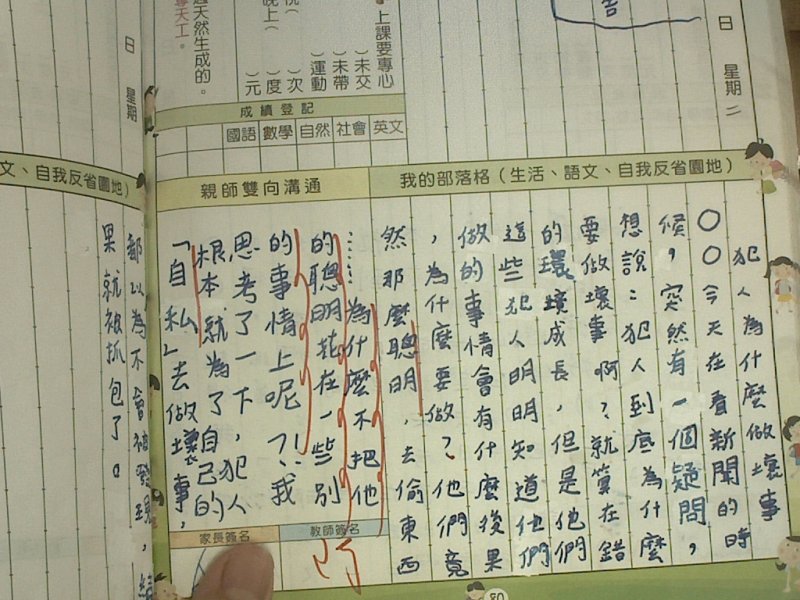 日 星期二
我的部落格(生活、語文、自我反省園地)
犯人為什麼做壞事
○○今天在看新聞的時
候,突然有一個疑問,
想說:犯人到底為什麼
要做壞事啊?就算在錯
的環境成長,但是他們
這些犯人明明知道他們
做的事情會有什麼後果
,為什麼要做?他們竟
然那麼聰明,去偷東西
……為什麼不把他
的聰明花在一些別
的事情上呢?!我
思考了一下,犯人
根本就為了自己的
「自私」去做壞事,
親師雙向溝通
教師簽名
家長簽名
上課要專心
)未交
)未帶
)運動
)次
)度
)元
成績登記
國語 數學 自然 社會 英文
天然生成的。
天工。
日 星期
文、自我反省園地)
都以為不會被發現,
果就被抓包了。
80